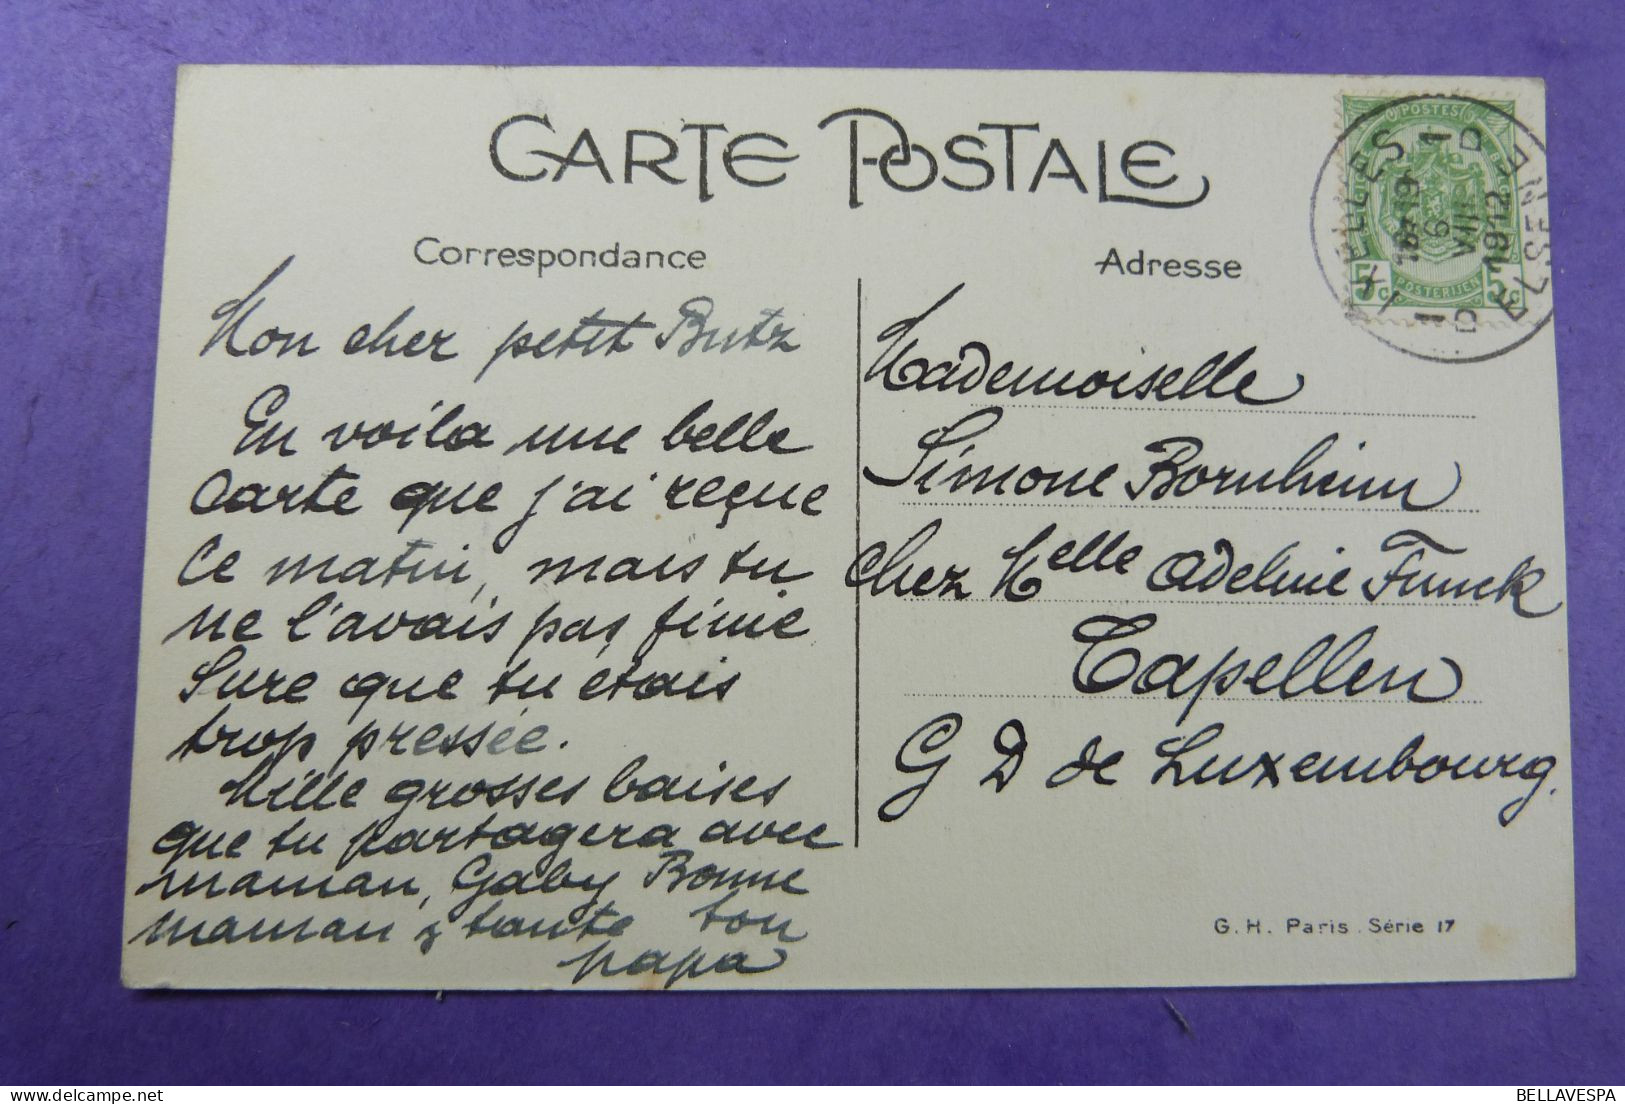 CARTE POSTALE
Correspondance
Mon cher petit Butz
En voila une belle
Carte que j'ai reçue
Ce matin, mais tu
ne l'avais pas finie
Sure que tu étais
trop pressée.
Mille grosses baises
que tu partagera avec
maman, Gaby Bonne
maman & tante ton
papa
Adresse
Mademoiselle
Simone Bornheim
Chez Melle Adeline Funck
Capellen
G D de Luxembourg.
G. H. Paris. Série 17
POSTES
POSTERIJEN
5c 5c
IXELLES
ELSENE
1 D
18-19
6
VIII
1912
1 D
BELLAVESPA